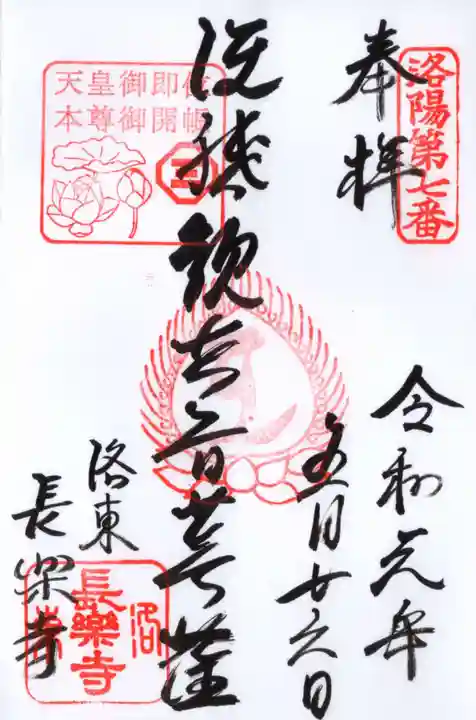 洛陽第七番
奉拝
令和元年
五月廿六日
准胝観世音菩薩
天皇御即位
本尊御開帳
三
洛東
長楽寺
洛
長樂寺